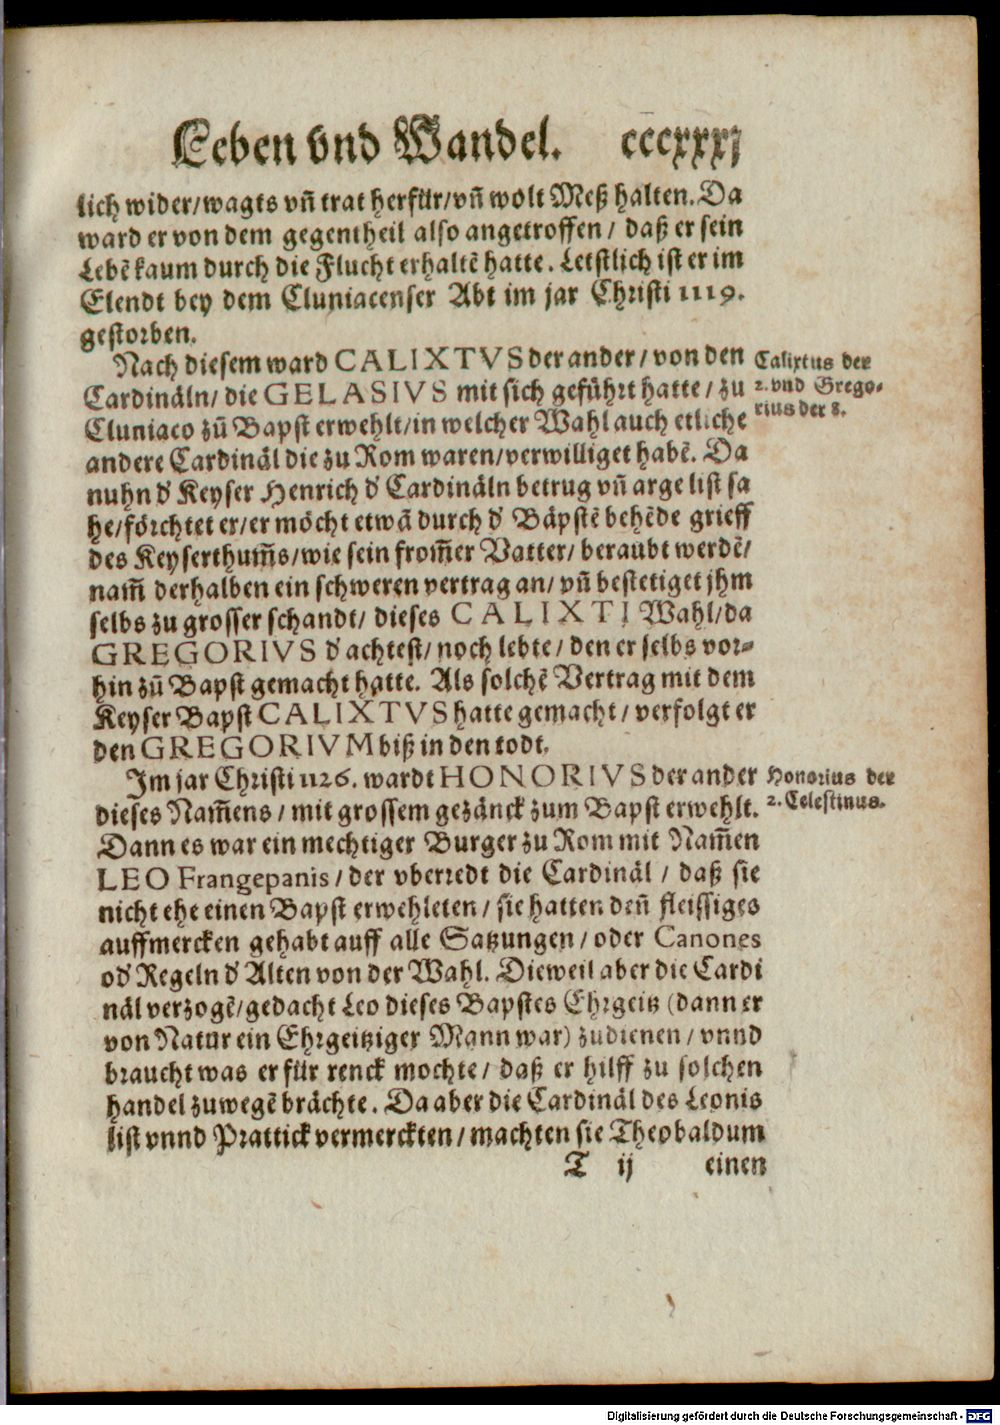 Leben vnd Wandel. cccxxxj
lich wider/wagts vñ trat herfür/vñ wolt Meß halten. Da
ward er von dem gegentheil also angetroffen / daß er sein
Lebẽ kaum durch die Flucht erhaltẽ hatte. Letstlich ist er im
Elendt bey dem Cluniacenser Abt im jar Christi 1119.
gestorben.
Nach diesem ward CALIXTVS der ander / von den
Cardinäln/ die GELASIVS mit sich geführt hatte / zu
Cluniaco zũ Bapst erwehlt/in welcher Wahl auch etliche
andere Cardinäl die zu Rom waren/verwilliget habẽ. Da
nuhn d' Keyser Henrich d' Cardinäln betrug vñ arge list sa
he/förchtet er/er möcht etwã durch d' Bäpstẽ behẽde grieff
des Keyserthum̃s/wie sein from̃er Vatter/ beraubt werdẽ/
nam̃ derhalben ein schweren vertrag an/ vñ bestetiget jhm
selbs zu grosser schandt/ dieses CALIXTI Wahl/da
GREGORIVS d' achtest/ noch lebte/ den er selbs vor-
hin zũ Bapst gemacht hatte. Als solchẽ Vertrag mit dem
Keyser Bapst CALIXTVS hatte gemacht / verfolgt er
den GREGORIVM biß in den todt.
Calixtus der
2. vnd Grego-
rius der 8.
Im jar Christi 1126. wardt HONORIVS der ander
dieses Nam̃ens / mit grossem gezänck zum Bapst erwehlt.
Dann es war ein mechtiger Burger zu Rom mit Nam̃en
LEO Frangepanis / der vberredt die Cardinäl / daß sie
nicht ehe einen Bapst erwehleten / sie hatten deñ fleissiges
auffmercken gehabt auff alle Satzungen / oder Canones
od' Regeln d' Alten von der Wahl. Dieweil aber die Cardi
näl verzogẽ/gedacht Leo dieses Bapstes Ehrgeitz (dann er
von Natur ein Ehrgeitziger Mann war) zudienen / vnnd
braucht was er für renck mochte / daß er hilff zu solchen
handel zuwegẽ brächte. Da aber die Cardinäl des Leonis
list vnnd Prattick vermerckten / machten sie Theobaldum
Honorius der
2. Celestinus.
T ij einen
Digitalisierung gefördert durch die Deutsche Forschungsgemeinschaft - DFG